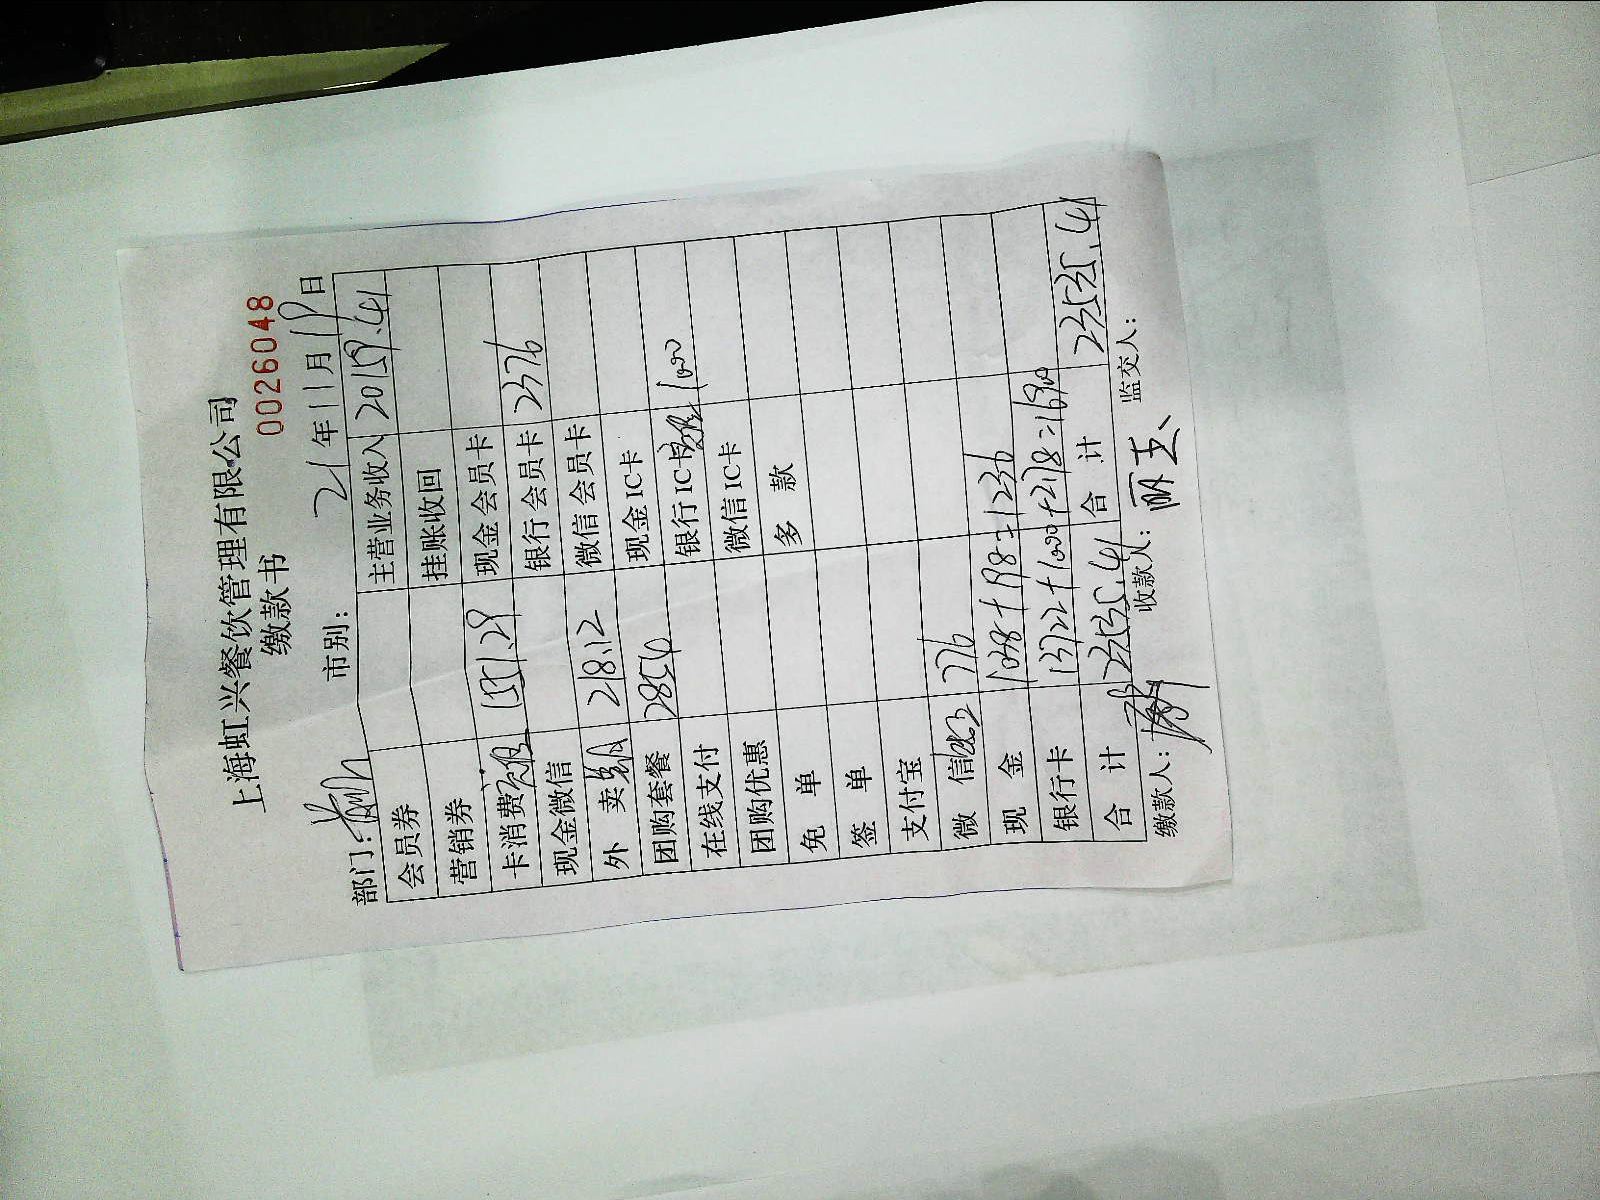 上海虹兴餐饮管理有限公司
缴款书 0026048
部门: 市别: 21年11月19日
会员券 主营业务收入 20159.41
营销券 挂账收回
卡消费 1551.29 现金会员卡
现金微信 银行会员卡 2376
外卖 218.12 微信会员卡
团购套餐 2854 现金IC卡
在线支付 银行IC卡 1000
团购优惠 微信IC卡
免单 多款
签单
支付宝
微信 776
现金 1038+198=1236
银行卡 13722+1000+2178=16900
合计 23535.41 合计 23535.41
缴款人: 收款人: 丽 监交人: